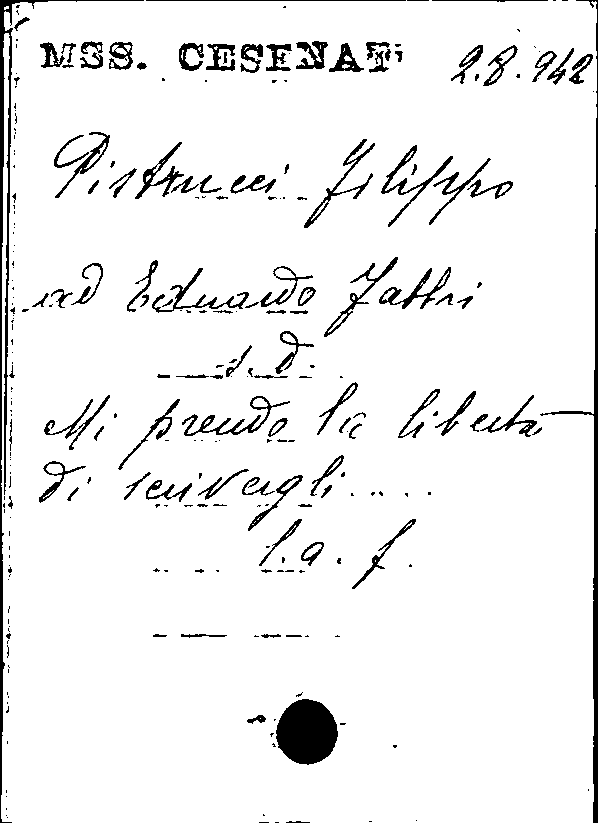 MSS. CESENATi 2.8.942
Pistrucci Filippo
ad Eduardo Fabbri
s.d.
Mi prendo la libertà
di scrivergli.....
l.a.f.